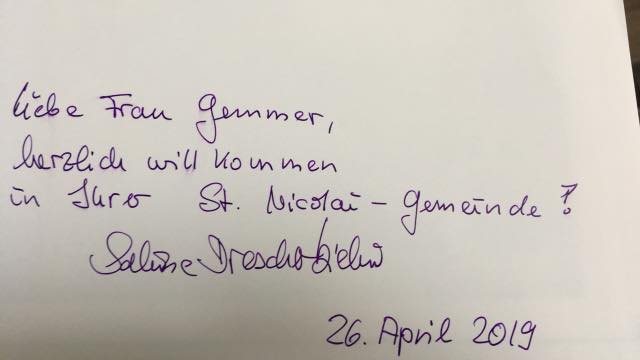 Liebe Frau Gemmer,
herzlich will kommen
in Ihrer St. Nicolai-Gemeinde!
Sabine
26. April 2019